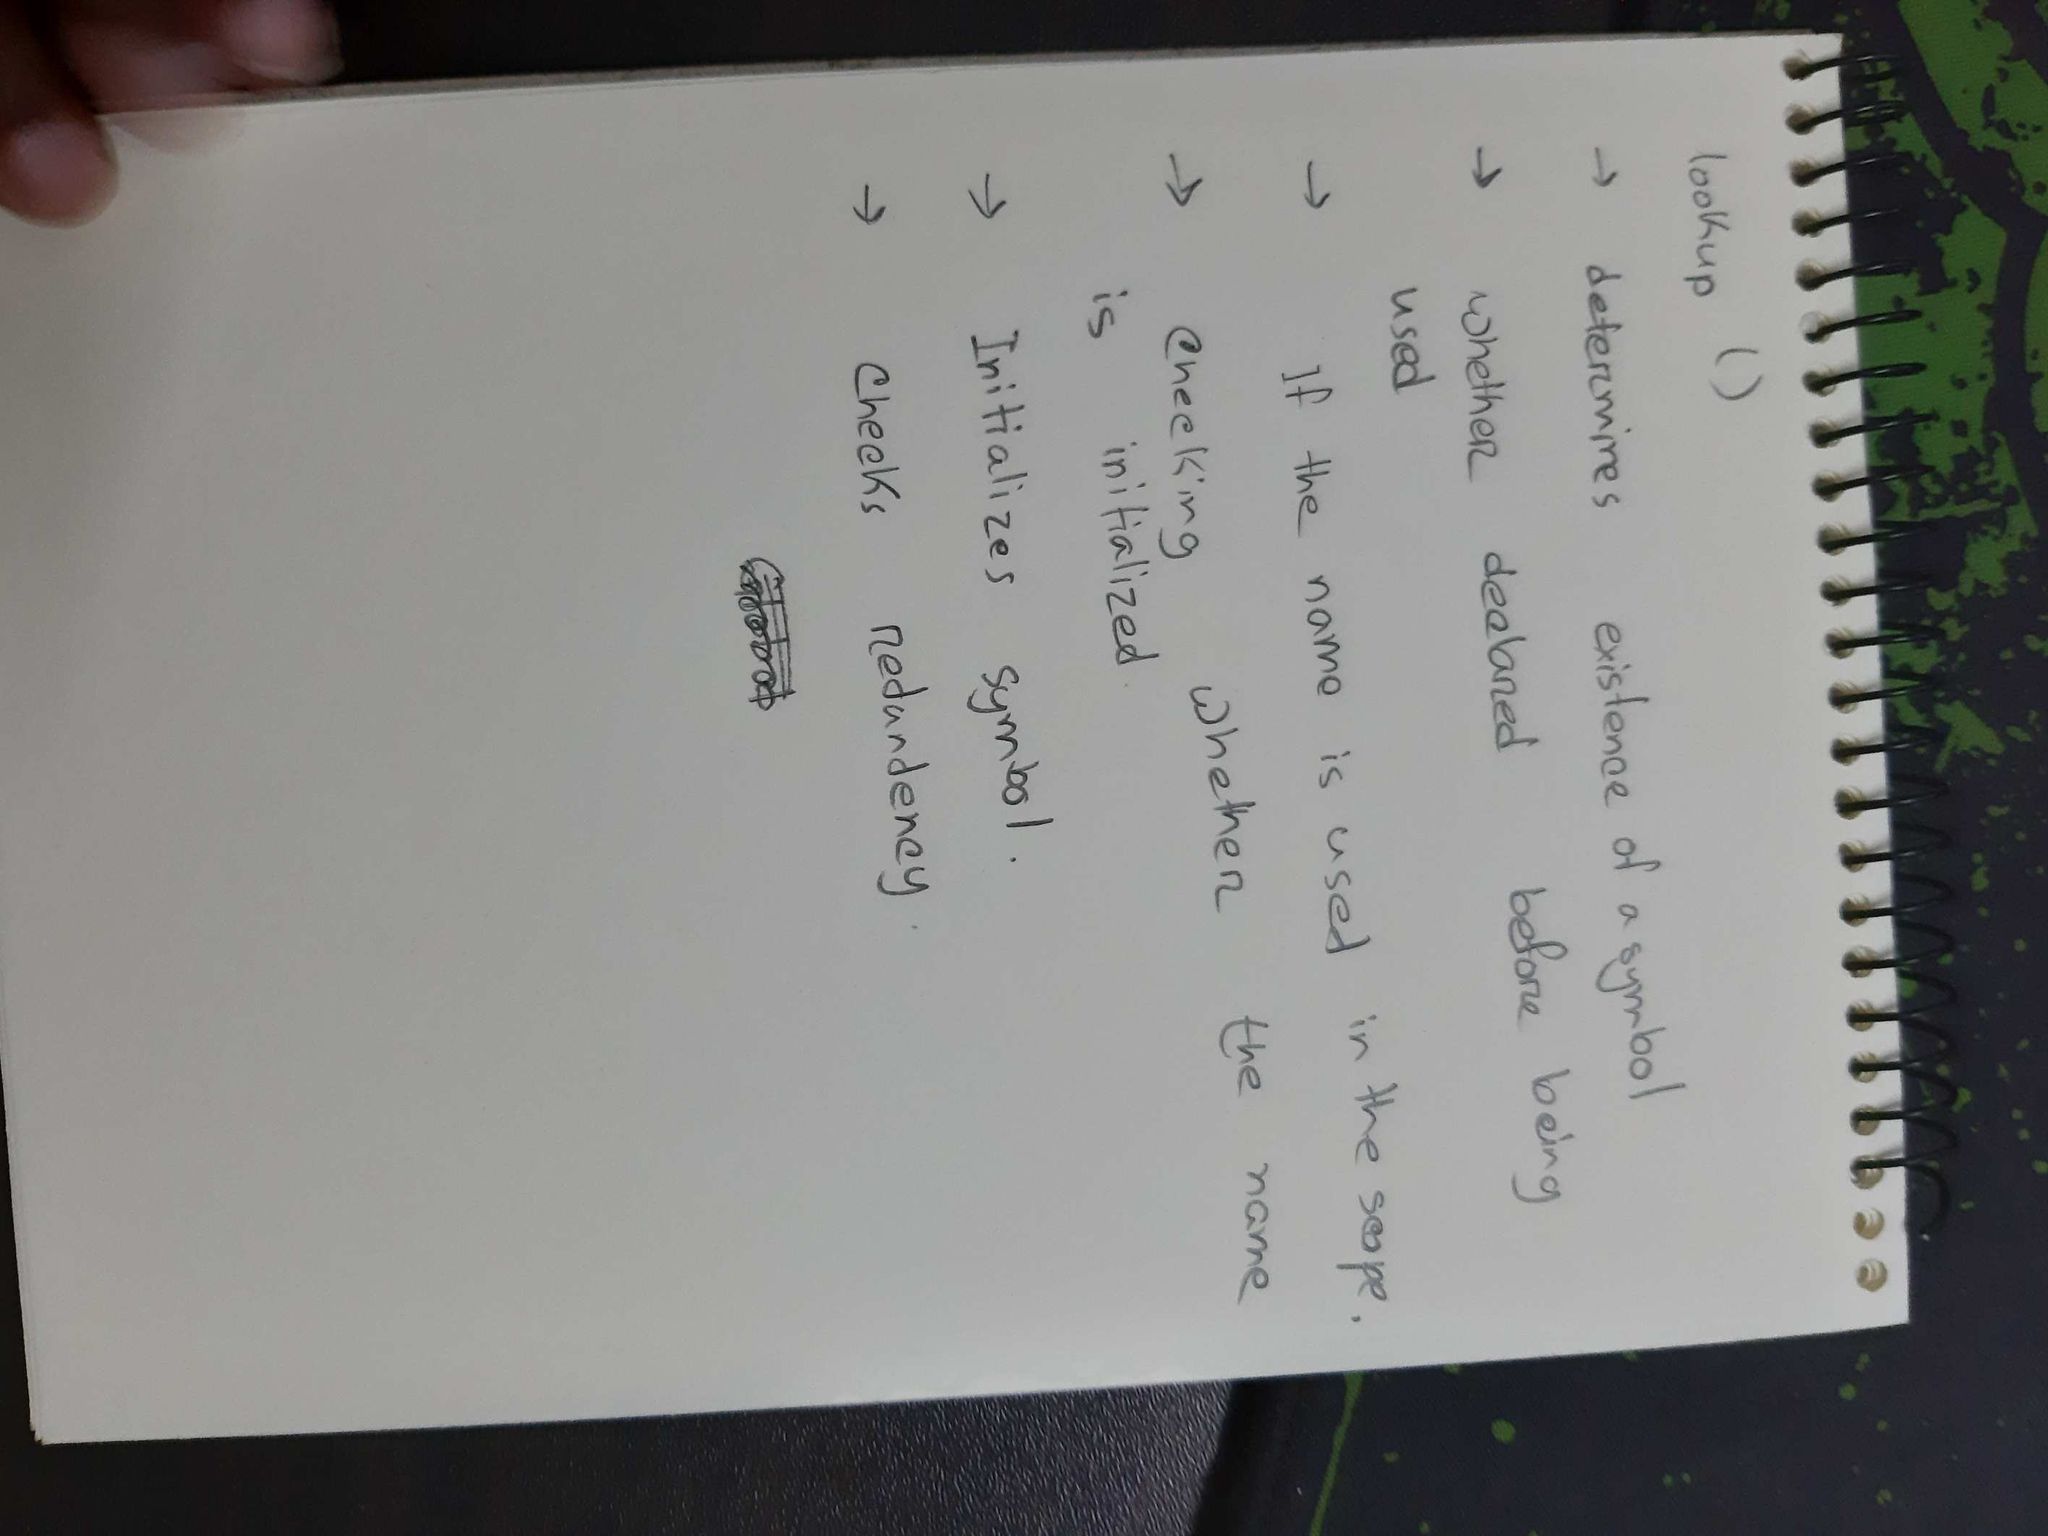 lookup ()
→ determines existence of a symbol
→ whether declared before being
used
→ If the name is used in the scope.
→ Checking whether the name
is initialized.
→ Initializes symbol.
→ Checks redundency.